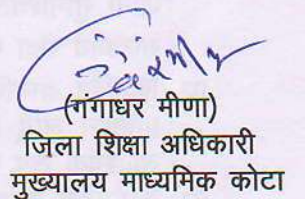 (गंगाधर मीणा)
जिला शिक्षा अधिकारी
मुख्यालय माध्यमिक कोटा